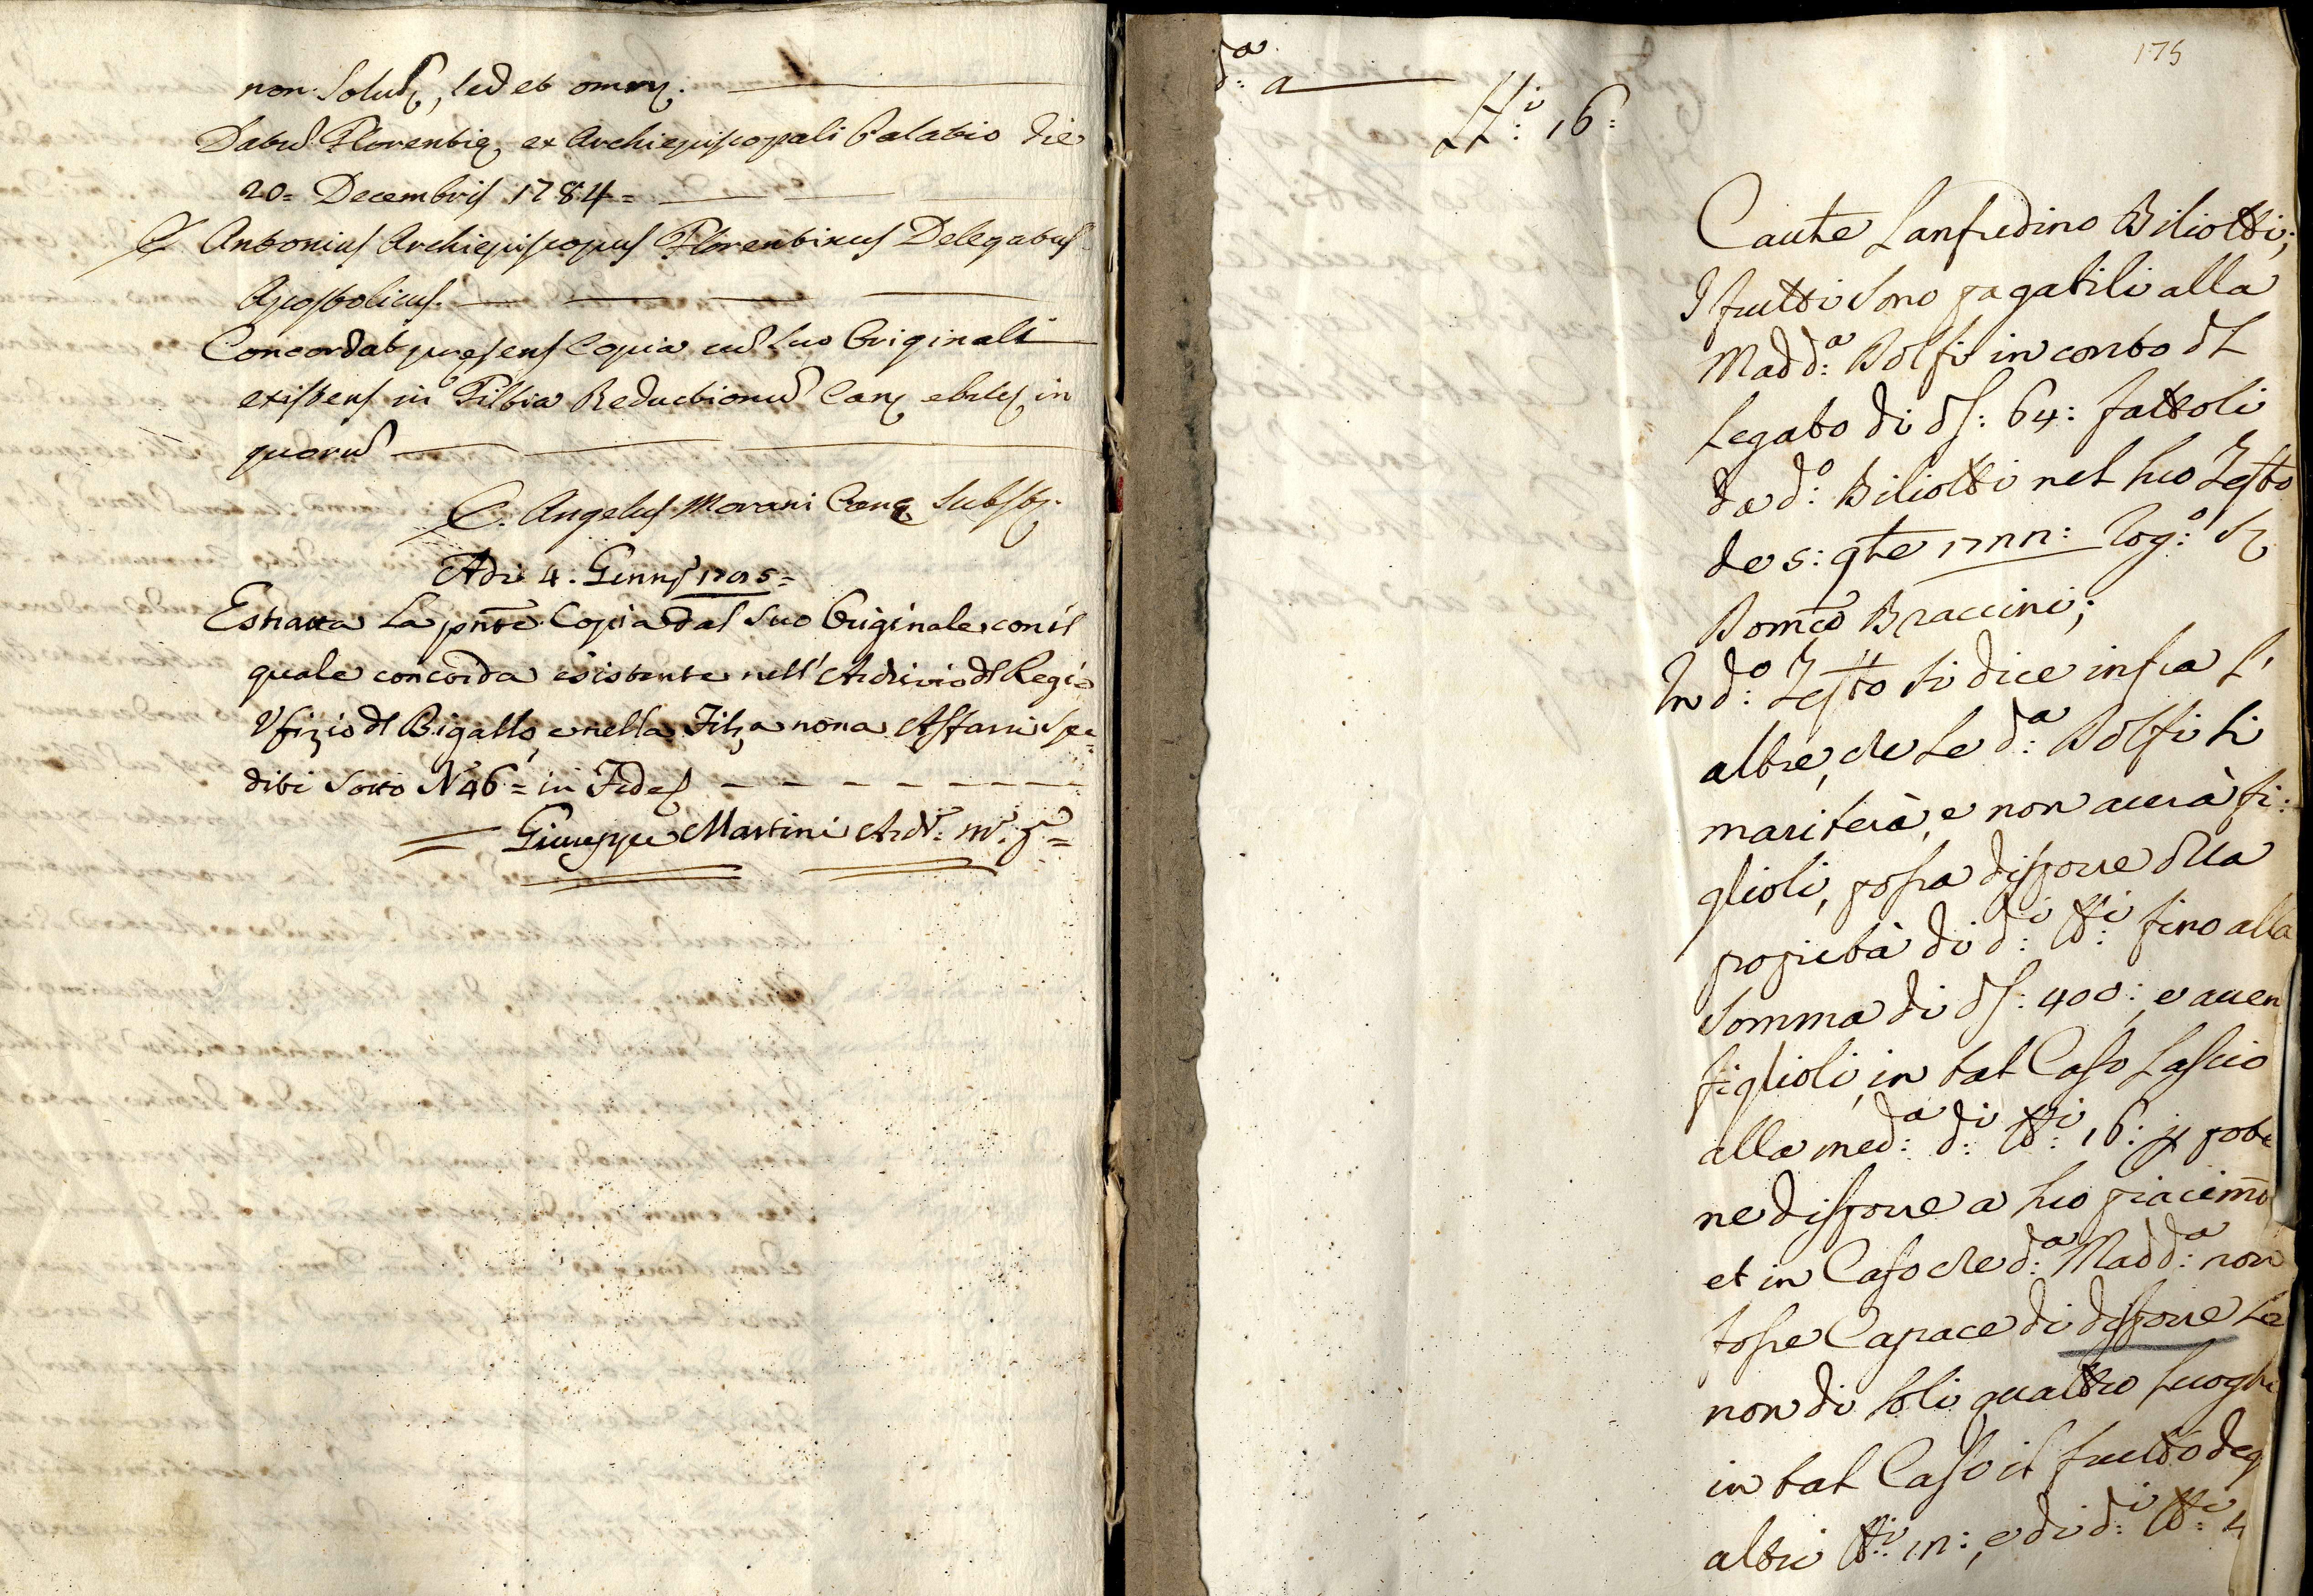 non Solũ, sed et omnj.
Datũ Florentię, ex Archiepiscopali Palatio die
20= Decembris 1784=
Antonius Archiepiscopus Florentinus Delegatus
Apostolicus.
Concordat presens Copia cũ suo Originali
existens in Filtia Reductionũ
quorũ
C. Angelus Morani Canc Subst.
Adi 4. Genn 1785=
Estratta La pñte Copia dal suo Originale con il
quale concorda esistente nell' Archivio dl Regio
Ufizio dl Bigallo, e nella Filza nona Affari Spe=
diti Sotto N 46= in Fide
Giuseppe Martini
175
d:a a
LL:i 16:
Caute Lanfredino Biliotti;
I frutti sono pagabili alla
Madd:a Dolfi in conto dl
Legato di ds: 64: fattoli
da d:o Biliotti nel suo Testto
de 5: gte 1722: Rog:o S
Domco Braccini;
In d:o Testto si dice infra l'
altre, che se d:a Dolfi si
mariterà, e non averà fi:
glioli, possa disporre dlla
proprietà di d:i LL:i fino alla
Somma di ds: 400: e aven
figlioli, in tal Caso Lascio
alla med:a d:i LL:i 16: p pote
ne disporre a suo piacimto
et in Caso che d:a Madd:a non
fosse Capace di disporre se
non di soli quattro Luoghi
in tal Caso il frutto deg
altri LL:i 12:, e di d:i LL:i 4